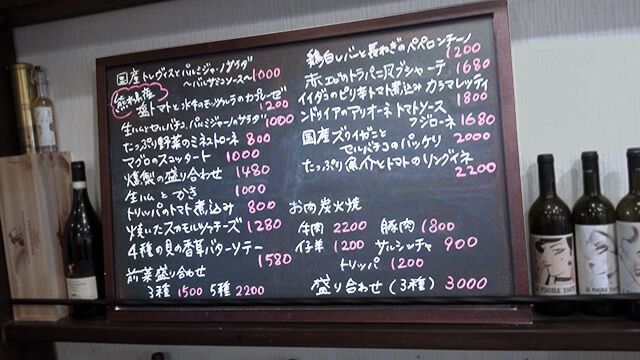 国産トレヴィスとパルミジャーノサラダ
〜バルサミコソース〜 1000
熊本県産
塩トマトと水牛のモッツァレラのカプレーゼ 1200
生ハムとセルバチコ、パルミジャーノのサラダ 1000
たっぷり野菜のミネストローネ 800
マグロのスコッタート 1000
燻製の盛り合わせ 1480
生ハムとかき 1000
トリッパのトマト煮込み 800
焼きたスのモルツチーズ 1280
4種の貝の香草バターソテー
1580
前菜盛り合わせ
3種 1500 5種 2200
鶏白レバーと長ねぎのペペロンチーノ
1200
赤エビのトラーパニ風ブシャーテ 1680
イイダコのピリ辛トマト煮込み カラマレッティ
1800
ンドゥイアのアリオーネ トマトソース
フジローネ 1680
国産ズワイガニと
セルバチコのパッケリ 2000
たっぷり魚介とトマトのリングイネ
2200
お肉炭火焼
牛肉 2200 豚肉 1800
仔羊 1200 サルシッチャ 900
トリッパ 1200
盛り合わせ(3種) 3000